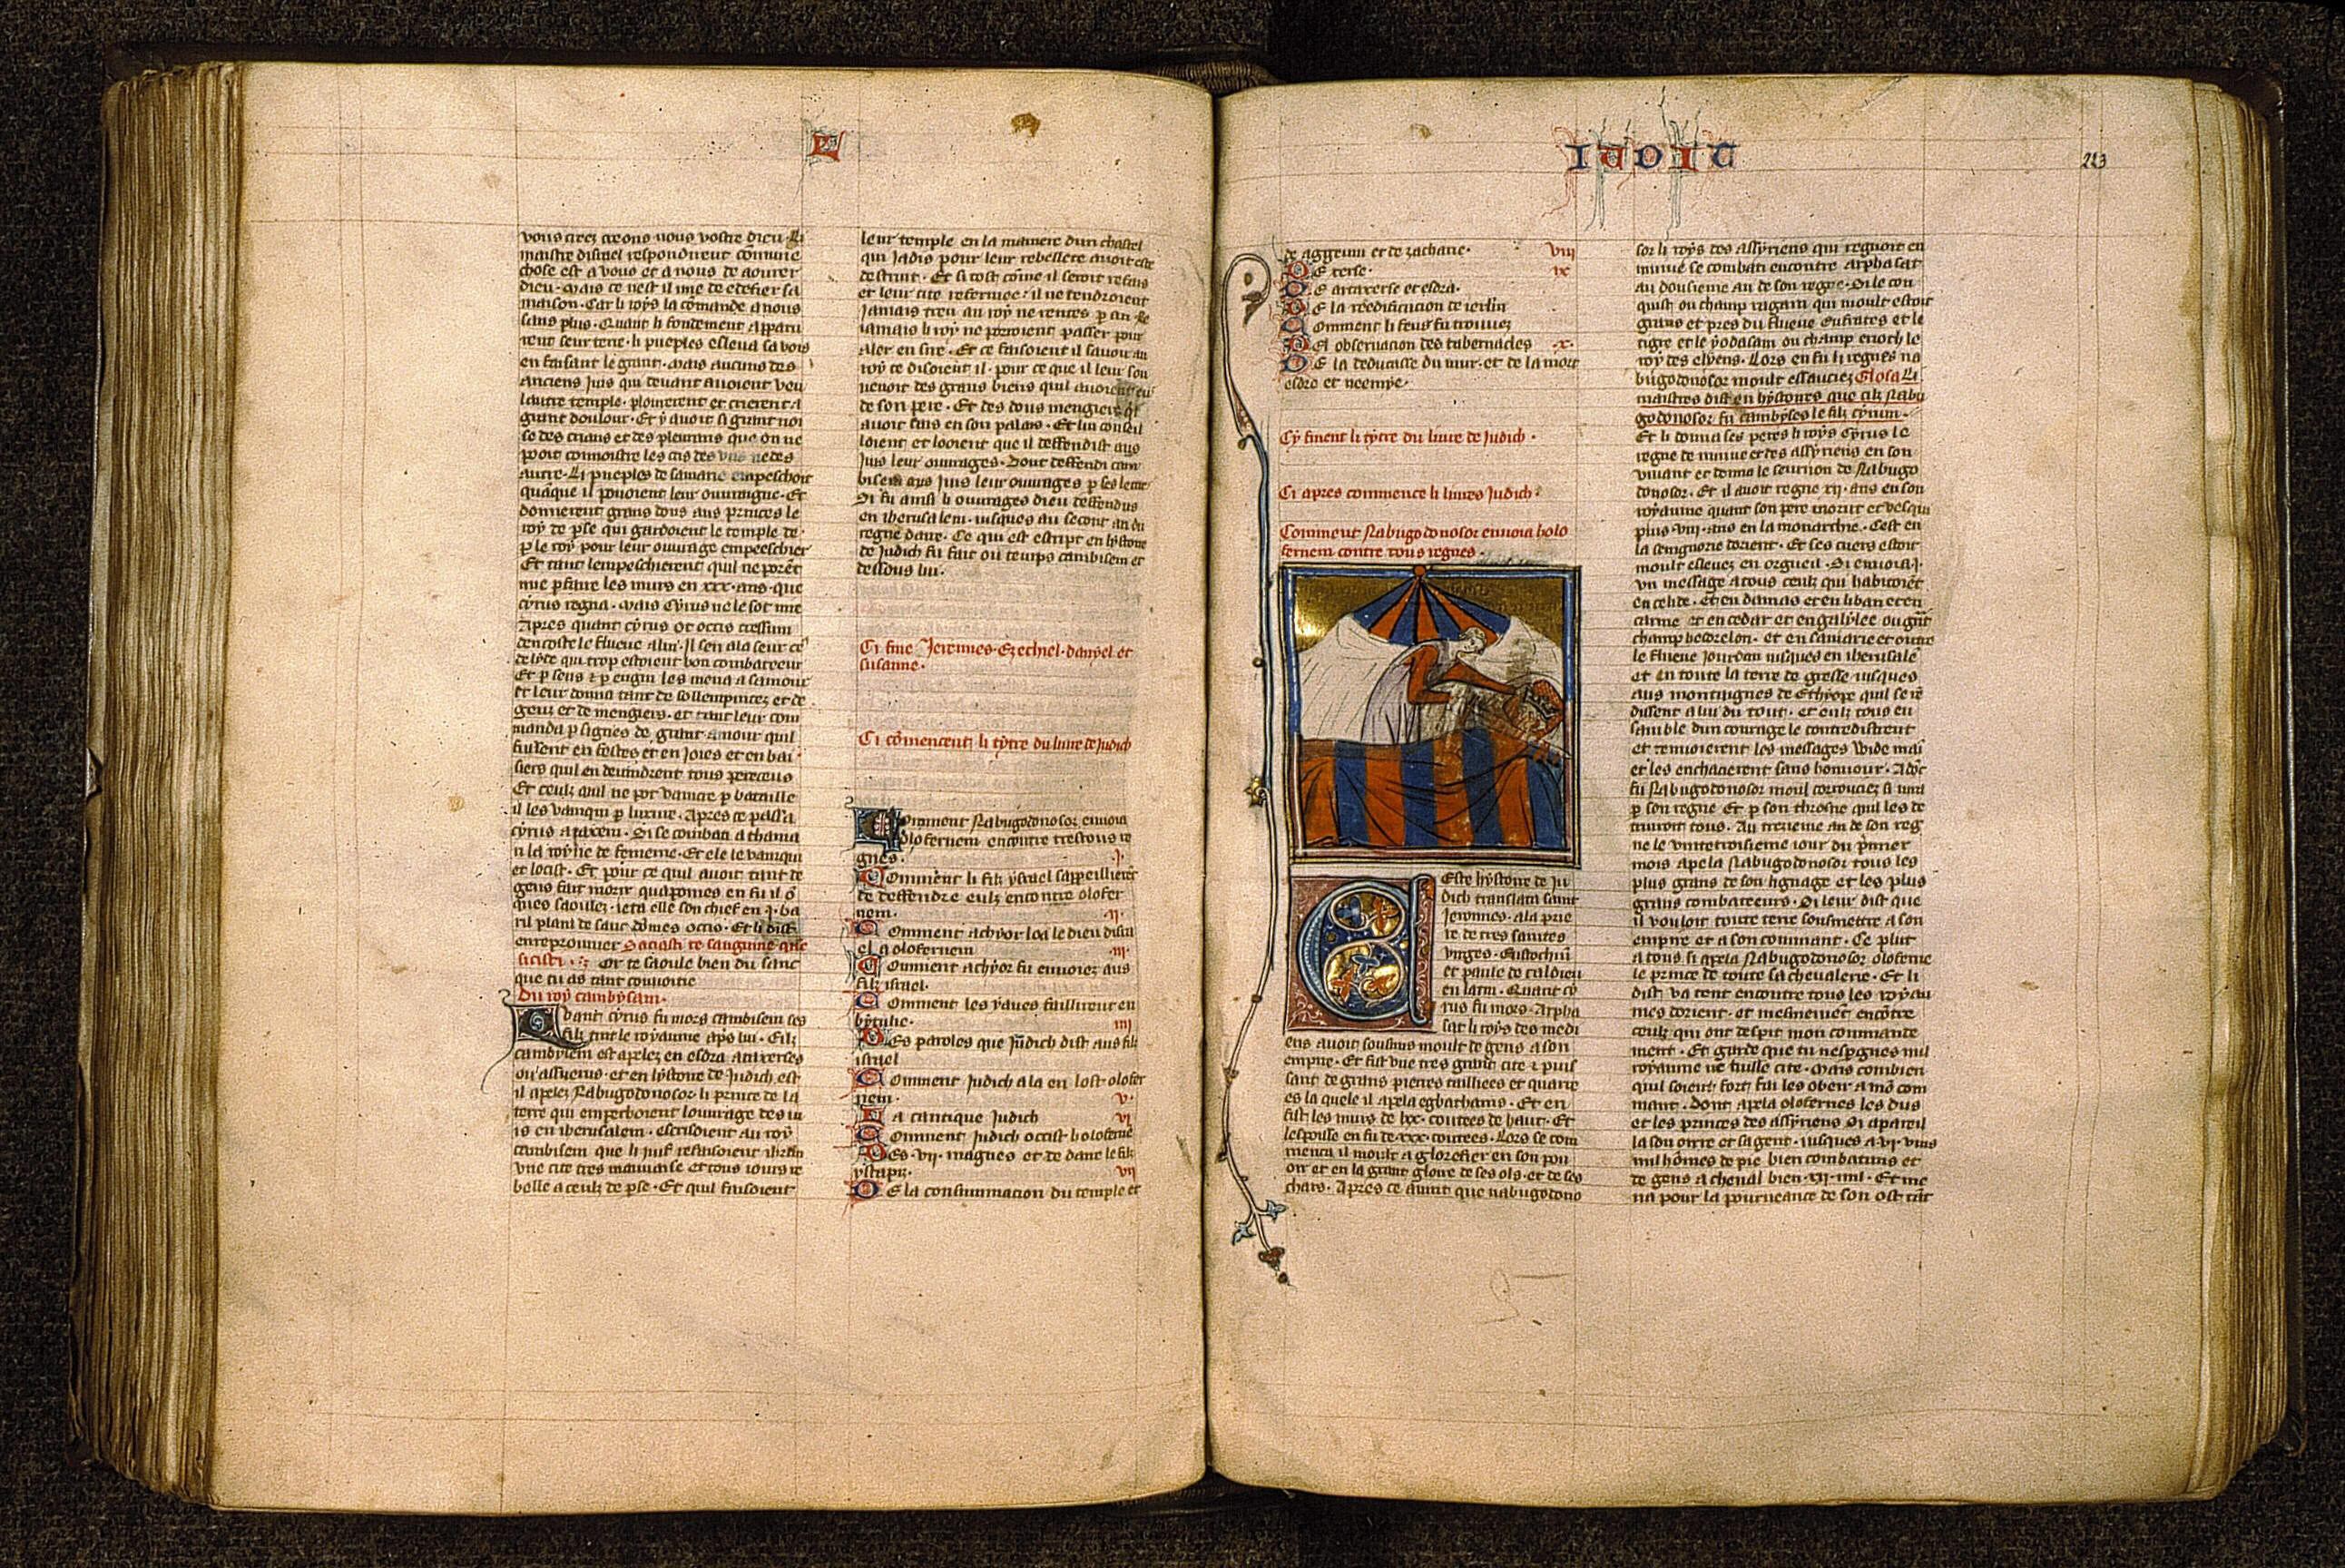 L
vous cirez creons nous vostre dieu. Li
maistre disrael respondirent comune
chose est a vous et a nous de aourer
dieu. Mais ce nest il mie de edefier sa
maison. Car li roys la comande a nous
sans plus. Quant li fondement apparu
rent seur terre. li pueples esleva sa vois
en faisant le grant. Mais aucuns des
anciens Juis qui devant avoient veu
lautre temple. plorerent et crierent a
grant doulour. Et y avoit si grant noi
se des crians et des pleurans que on ne
pooit connoistre les cris des uns ne des
autre. Li pueples de samarie empeschoit
quanque il pouoient leur ouvraigne. Et
donnerent grans dons aus princes le
roy de pse qui gardoient le temple de
p le roy pour leur ouvrage empeeschier
Et tant lempeschierent quil ne porent
mie pfaire les murs en xxx. ans. que
cyrus regna. Mais Cyrus ne le sot mie
Apres quant cyrus ot occis cressum
dencoste le flueue alin. Il sen ala seur ceu
de lyde qui trop estoient bon combateeur
Et p sens et p engin les mena a samour
et leur donna tant de sollempnitez et de
geuz et de mengiers. et tant leur com
manda p signes de grant amour quil
fussent en festes et en Joies et en bai
siers quil en devindrent tous pereceus
Et ceulz quil ne pot vaincre p bataille
il les vainqui p luxure. Apres ce passa
cyrus araxem. Si se combati a thama
n la royne de femenie. Et ele le vainqui
et locist. Et pour ce quil avoit tant de
gens fait morir
ques saoulez. ieta elle son chief en .j. ba
ril plain de sanc domes occis. Et li dist
enreprouvier Saciasti te sanguine que
sitisti. Or te saoule bien du sanc
que tu as tant couvoitie
Du roy cambysam.
Avant cyrus fu mors cambisem ses
filz tint le royaume aps lui. Cilz
cambysem est apelez en esdra artaxerses
ou assuerus. et en lystoire de Judich est
il apelez Nabugodonosor li prince de la
terre qui empechoient louvrage des iu
is en iherusalem. escrisoient au roy
cambisem que li juif refaisoient ihrlm
une cite tres mauvaise et tous iours re
belle a ceulz de pse. Et quil faisoient
leur temple en la maniere dun chastel
qui Jadis pour leur rebellete avoit este
destruit. Et si tost come il seroit refais
et leur cite refermee. il ne rendroient
Jamais treu au roy ne rentes p an. Ne
iamais li roy ne porroient passer pour
aler en sire. Et ce faisoient il savoir au
roy ce disoient il. pour ce que il leur sou
venoit des grans biens quil avoient eu
de son pere. Et des dous mengiers ql
avoit fais en son palais. Et lui conseil
loient et looient que il deffendist aus
Juis leur ouvrages. Dont deffendi cam
bisem aus Juis leur ouvrages p ses lettres
Si fu ainsi li ouvrages dieu deffendus
en iherusalem. iusques au secont an du
regne daire. Ce qui est escript en hystoire
de Judich fu fait ou temps cambisem et
dessous lui.
Ci fine Jeremies. Ezechiel. danyel. et
susanne.
Ci comencent li tytre du livre de Judich
Comment Nabugodonosor envoia
olofernem encontre trestous re
gnes. .j.
Comment li filz ysrael sappeillierent
de deffendre eulz encontre olofer
nem. .ij.
Comment achyor loa le dieu disra
el a olofernem .iij.
Comment achyor fu envoiez aus
filz israel.
Comment les yaues faillirent en
bytulie. iiij
Des paroles que Judich dist aus filz
israel
Comment Judich ala en lost olofer
nem. v.
La cantique Judich vi
Comment Judich occist holoferne
Des .vij. magues et de daire le filz
ystapi. vij
De la consummacion du temple et
IUDIC
223
de aggeum et de zacharie. viij
De xerse. ix
De artaxerse et esdra.
De la reedificacion de ierlm
Comment li feus fu trouvez
Del observacion des tabernacles .x.
De la dedicasse du mur. et de la mort
esdre et neemye.
Cy finent li tytre du livre de Judich.
Ci apres commence li livres Judich.
Comment Nabugodonosor envoia holo
fernem contre tous regnes.
Ceste hystoire de Ju
dich translata saint
Jeromes. a la prie
re de tres saintes
virges. Eustochium
et paule de caldieu
en latin. Quant cy
rus fu mors. Arpha
sat li roys des medi
ens avoit sousmis moult de gens a son
empire. Et fist une tres grant cite et puis
sant de grans pierres tailliees et quarre
es la quele il apela egbathanis. Et en
fist les murs de lxx. coutees de haut. Et
lespoisse en fu de xxx. coutees. Lors se com
menca il moult a glorefier en son pou
oir et en la grant gloire de ses ols. et de ses
chars. Apres ce avint que nabugodono
sor li roys des assyriens qui regnoit en
ninive se combati encontre arphasat
au dousieme an de son regne. Si le con
quist ou champ ragam qui moult estoit
grans et pres du flueue Eufrates et le
tigre et le yodasam ou champ erioch le
roy des elyens. Lors en fu li regnes na
bugodonosor moult essauciez Glosa Li
maistres dist en hystoires que cilz Nabu
godonosor fu cambyses le filz cyrum.
Et li donna ses peres li roys Cyrus le
regne de ninive et des assyriens en son
vivant et donna le seurnon de Nabugo
donosor. Et il avoit regne xij. ans en son
royaume quant son pere morut et vesqui
plus .viij. ans en la monarchie. Cest en
la seingnorie dorient. Et ses cuers estoit
moult eslevez en orgueil. Si envoia .j.
un message a tous ceulz qui habitoient
en celide. et en damas et en liban et en
carme et en cedar et en galylee ou grant
champ besdrelon. et en samarie et outre
le flueue Jourdan iusques en iherusale
et en toute la terre de gresse iusques
aus montaignes de Ethyope quil se re
dissent a lui du tout. et eulz tous en
samble dun courage le contredistrent
et renvoierent les messages wide mai
et les enchacierent sans honnour. Adonc
fu Nabugodonosor moul corrouciez si iura
p son regne et p son throsne quil les de
truiroit tous. Au trezieme an de son reg
ne le vintetroisieme iour du pmier
mois apela Nabugodonosor tous les
plus grans de son lignage et les plus
grans combateeurs. Si leur dist que
il vouloit toute terre sousmettre a son
empire et a son commant. Ce plut
a tous si apela Nabugodonosor oloferne
le prince de toute sa chevalerie. Et li
dist va tent encontre tous les royau
mes dorient. et meismement encontre
ceulz qui ont despit mon commande
ment. Et garde que tu nespgnes nul
royaume ne nulle cite. Mais combien
quil soient fort fai les obeir a mon com
mant. Dont apela olofernes les dus
et les princes des assyriens Si apareil
la son oirre et sa gent. iusques a .vi. vins
mil homes de pie bien combatans et
de gens a cheval bien .xij. mil. Et me
na pour la pourveance de son ost tant